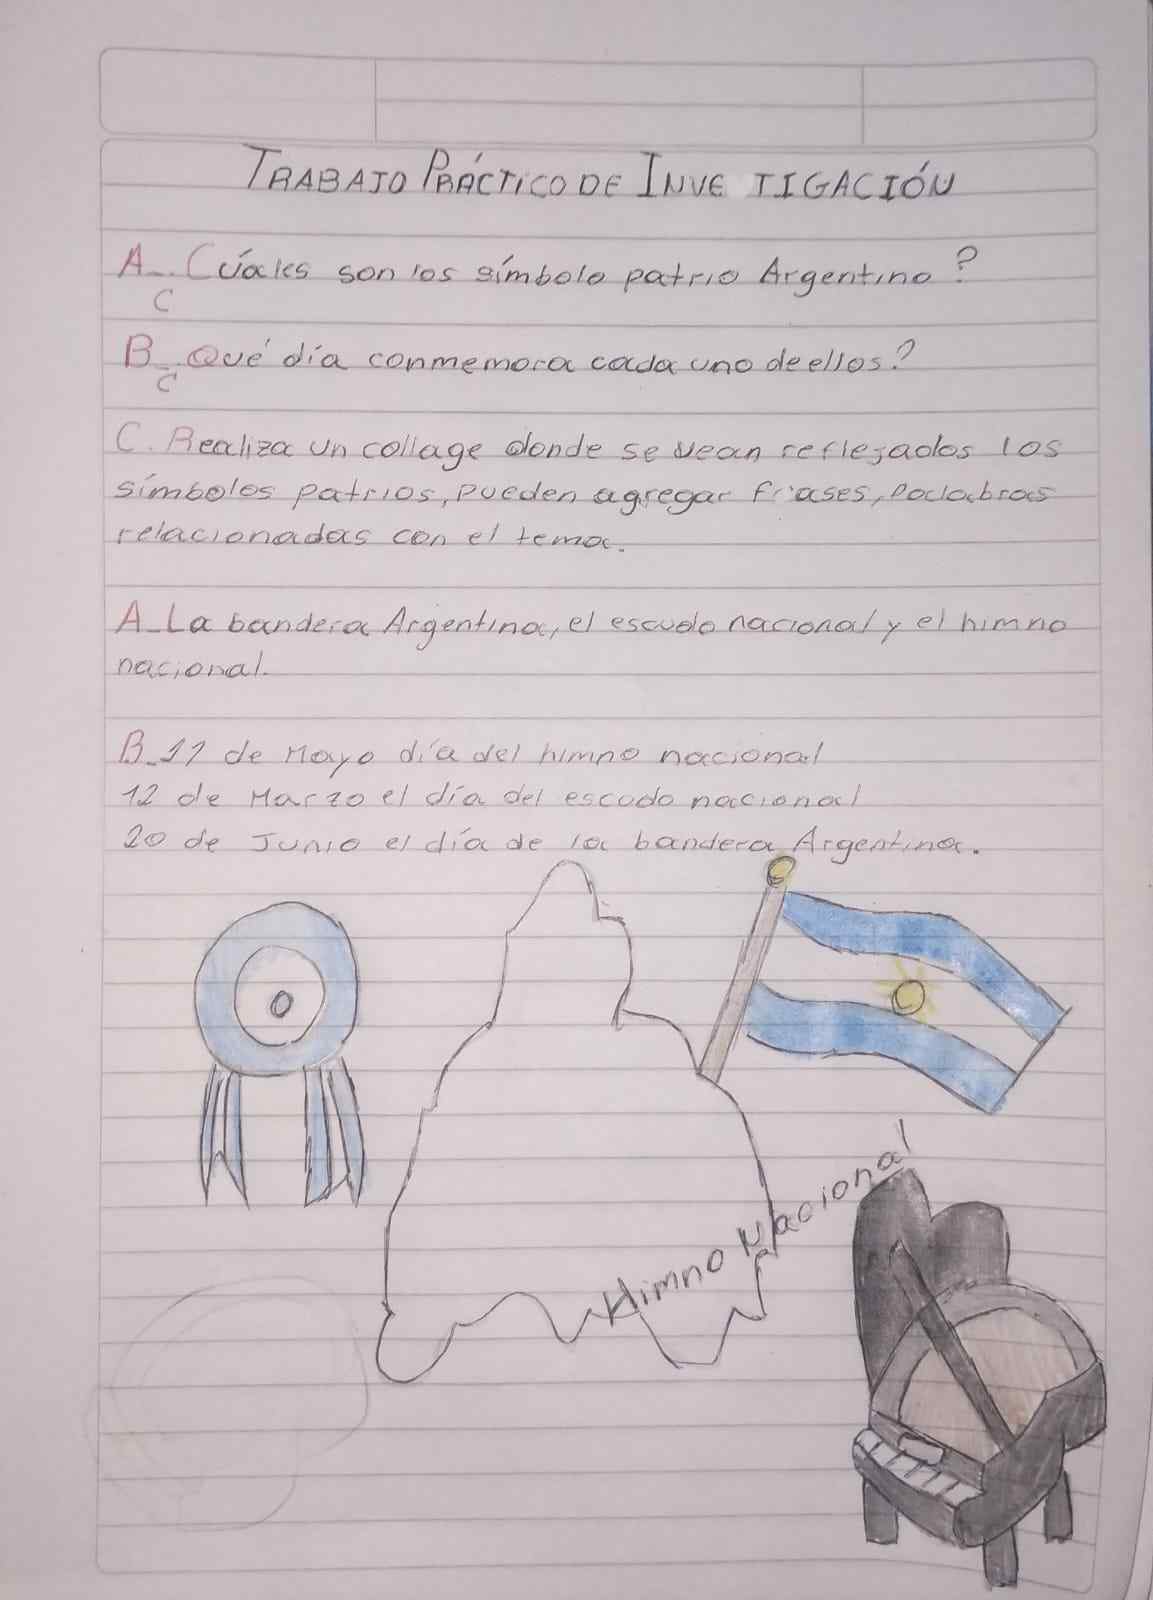 TRABAJO PRÁCTICO DE INVE TIGACIÓN
A_. Cúales son los símbolo patrio Argentino?
C
B_. Qué día conmemora cada uno de ellos?
C
C. Realiza un collage donde se vean reflejados los
símbolos patrios, pueden agregar frases, palabras
relacionadas con el tema.
A_La bandera Argentina, el escudo nacional y el himno
nacional.
B_11 de Mayo día del himno nacional
12 de Marzo el día del escudo nacional
20 de Junio el día de la bandera Argentina.
Himno Nacional